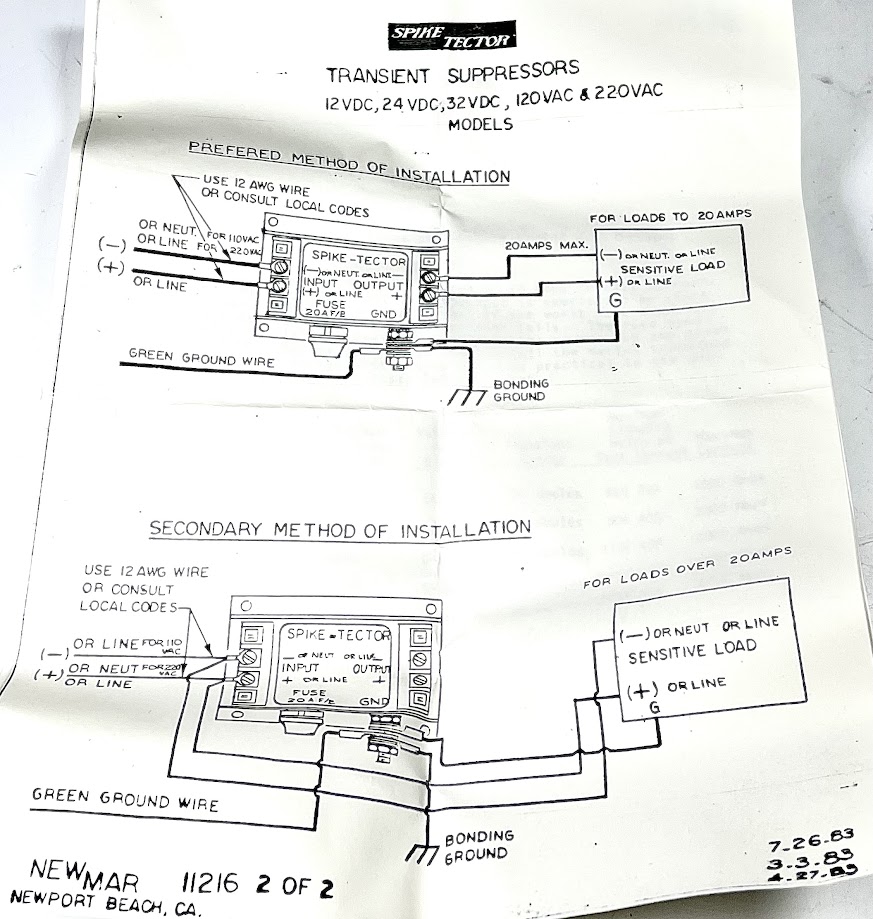 SPIKE
TECTOR
TRANSIENT SUPPRESSORS
12VDC, 24VDC, 32VDC, 120VAC & 220VAC
MODELS
PREFERED METHOD OF INSTALLATION
USE 12 AWG WIRE
OR CONSULT LOCAL CODES
OR NEUT. FOR 110VAC
(-) OR LINE FOR 220VAC
(+)
OR LINE
SPIKE-TECTOR
(-) OR NEUT. OR LINE -
INPUT OUTPUT
(+) OR LINE +
FUSE
20A F/B GND
GREEN GROUND WIRE
20AMPS MAX.
FOR LOADS TO 20AMPS
(-) OR NEUT. OR LINE
SENSITIVE LOAD
(+) OR LINE
G
BONDING
GROUND
SECONDARY METHOD OF INSTALLATION
USE 12AWG WIRE
OR CONSULT
LOCAL CODES
(-) OR LINE FOR 110 VAC
(+) OR NEUT FOR 220 VAC
OR LINE
SPIKE-TECTOR
- OR NEUT OR LINE -
INPUT OUTPUT
+ OR LINE +
FUSE
20A F/B GND
GREEN GROUND WIRE
FOR LOADS OVER 20AMPS
(-) OR NEUT OR LINE
SENSITIVE LOAD
(+) OR LINE
G
BONDING
GROUND
NEWMAR 11216 2 OF 2
NEWPORT BEACH, CA.
7-26-83
3-3-83
4-27-83